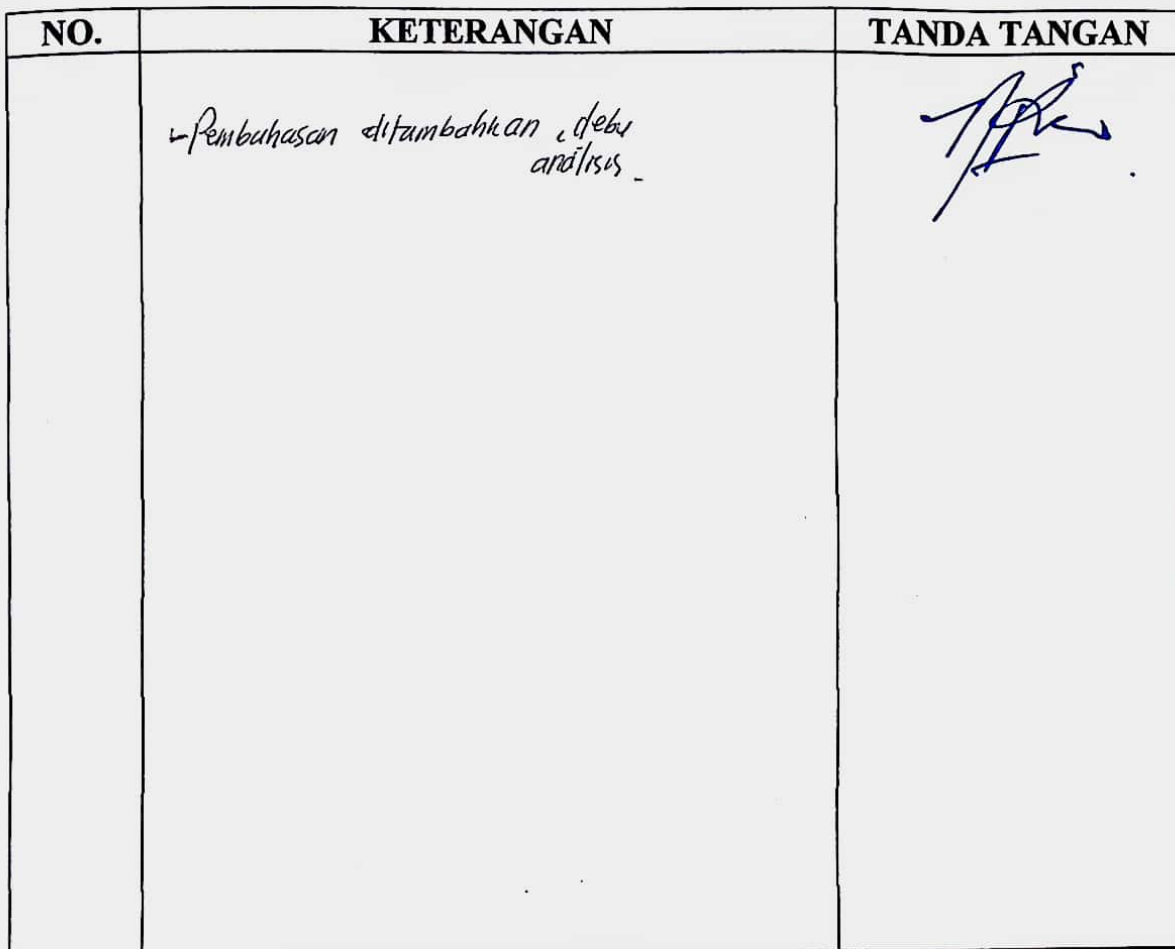 NO. KETERANGAN TANDA TANGAN
- Pembahasan ditambahkan, debu
analisis -